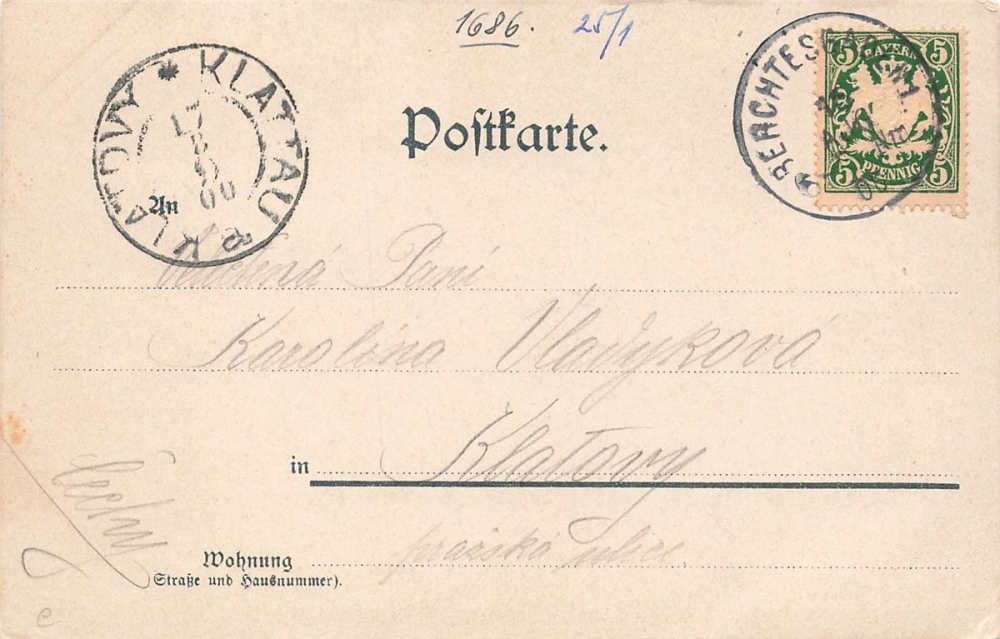 1686. 25/1
BAYERN
5 5
PFENNIG
5 5
BERCHTESGADEN 1.
00
KLATTAU
KLATOVY
17
8
00
Postkarte.
An
Velectěná Paní
Karolina Vladykova
in Klatovy
Čechy
pražská ulice
Wohnung
(Straße und Hausnummer).
e